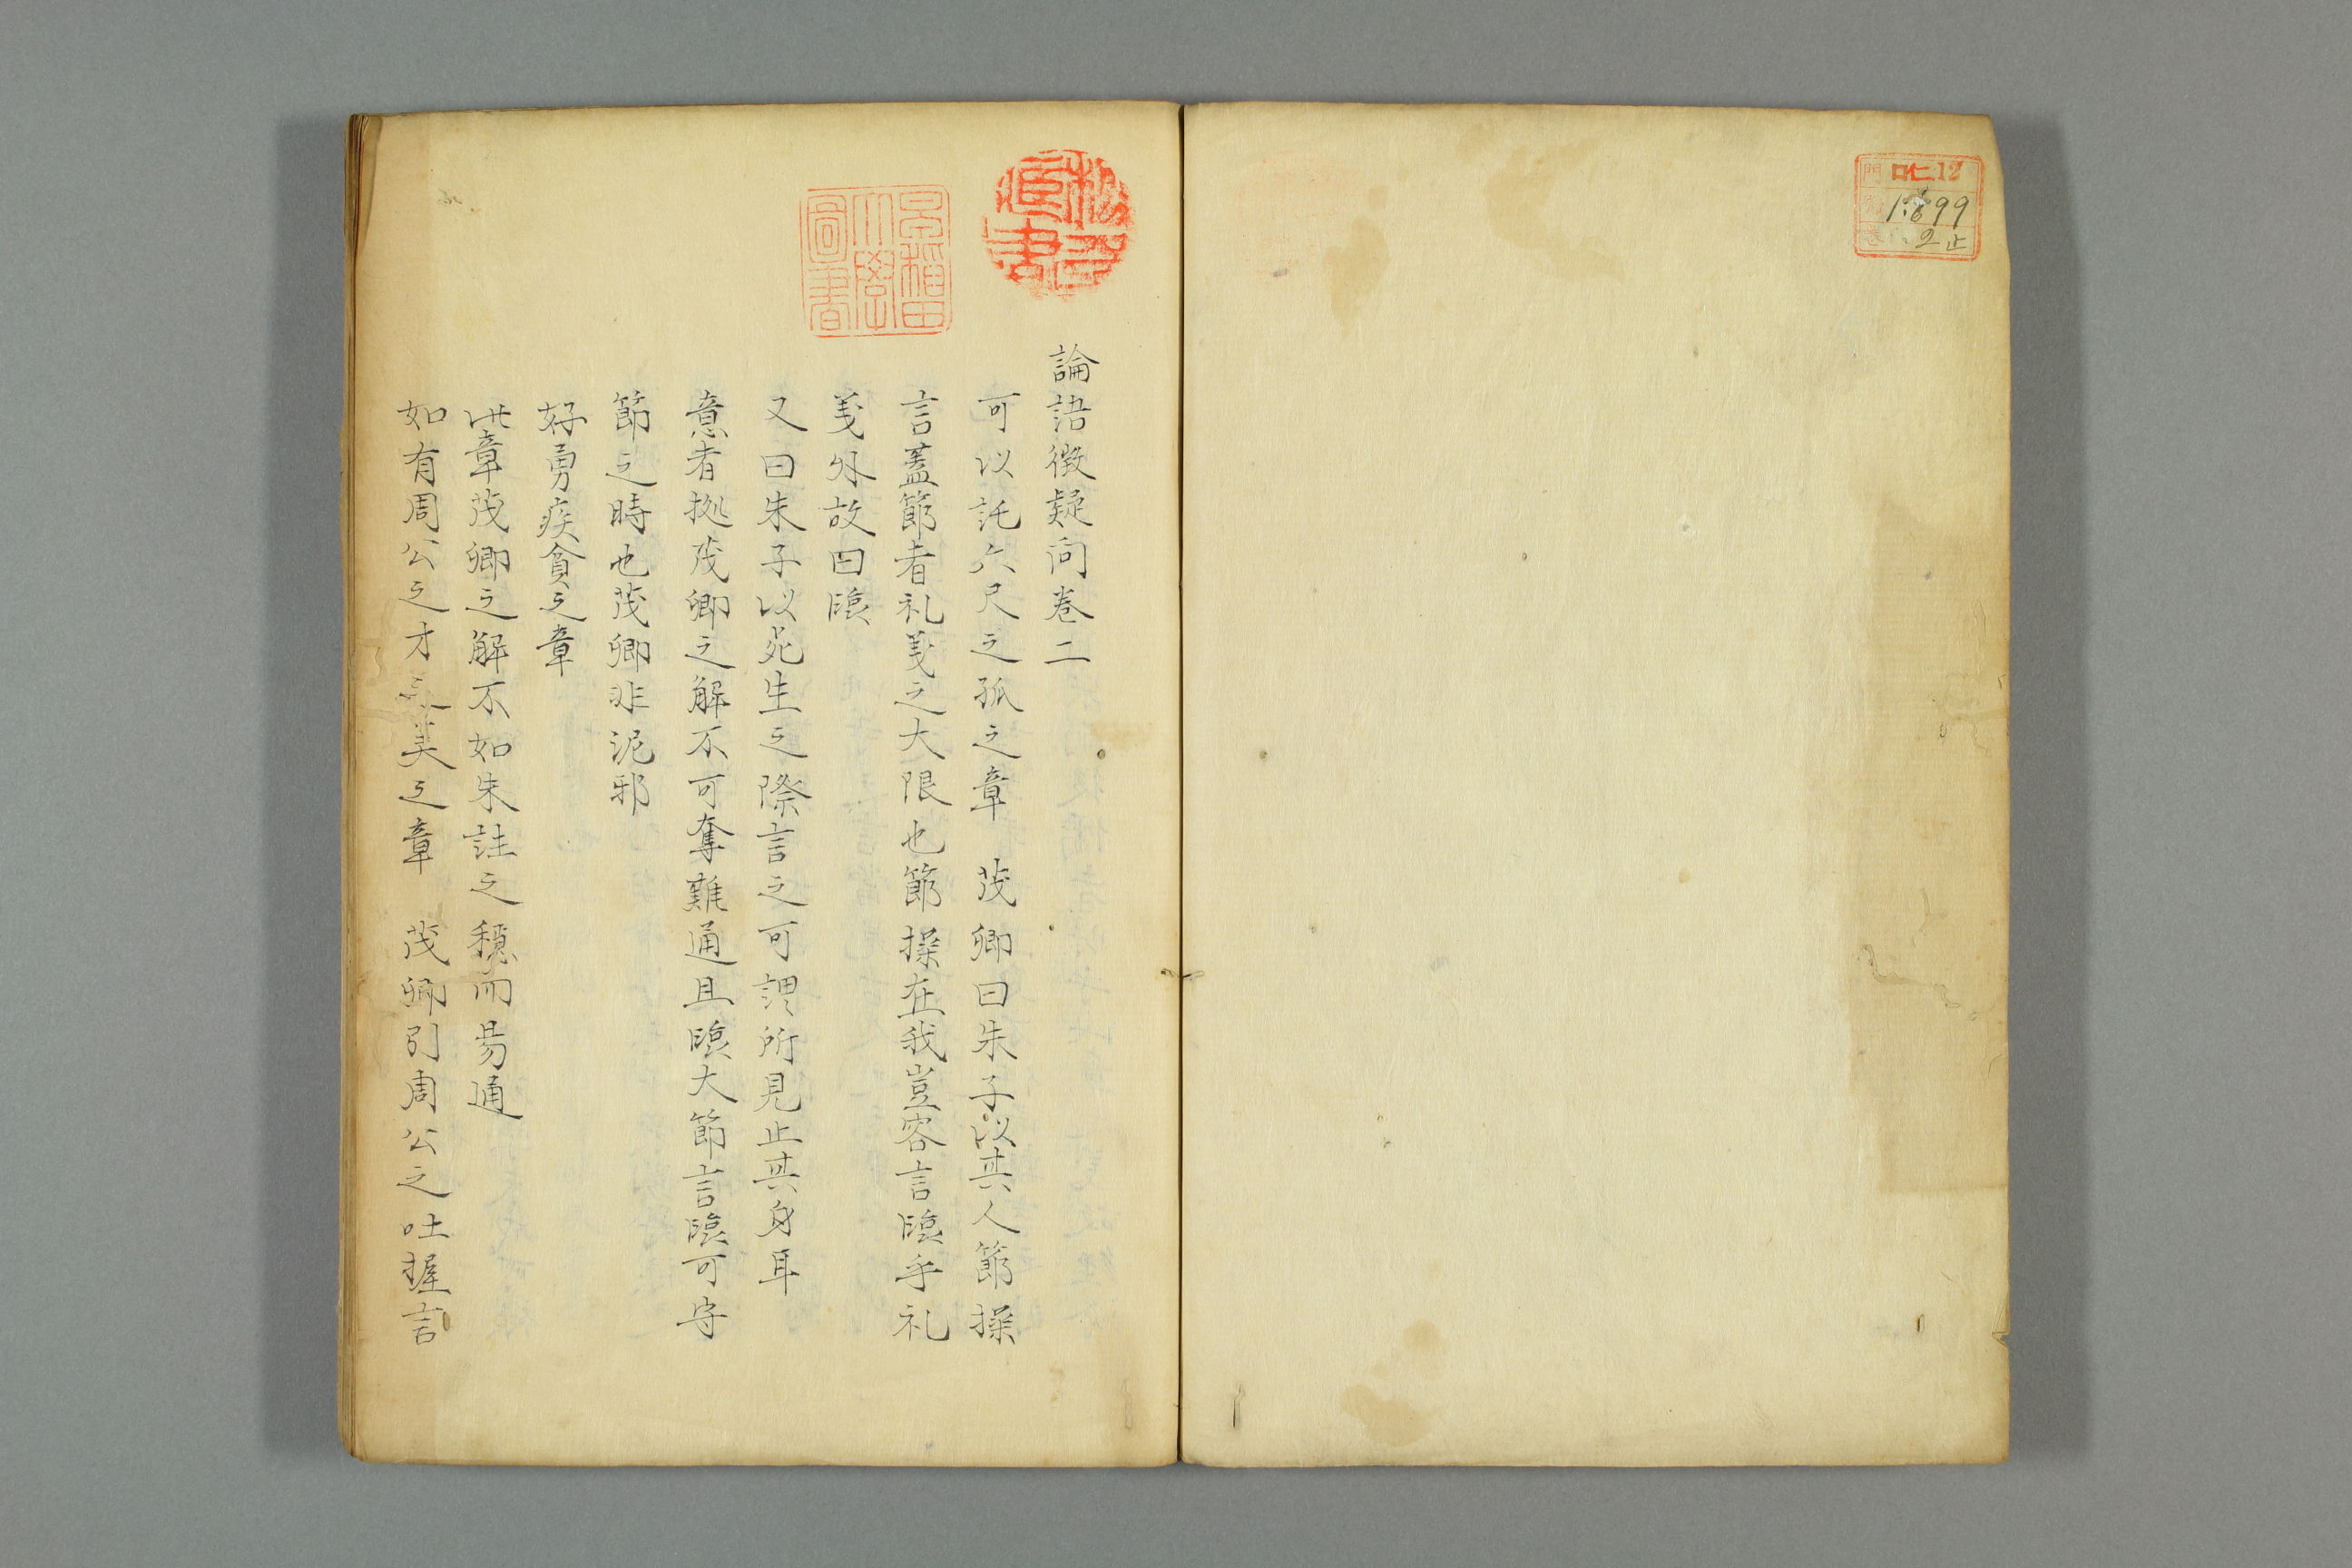 門 ロ仁12
1899
2止
論語徴疑問巻二
可以託六尺之孤之章 茂卿曰朱子以其人節操
言蓋節者礼義之大限也節操在我豈容言臨乎礼
義外故曰臨
又曰朱子以死生之際言之可謂所見止其身耳
意者拠茂卿之解不可奪難通且臨大節言臨可守
節之時也茂卿非泥邪
好勇疾貪之章
此章茂卿之解不如朱註之穏而易通
如有周公之才之美之章 茂卿引周公之吐握言
早稲田大學圖書